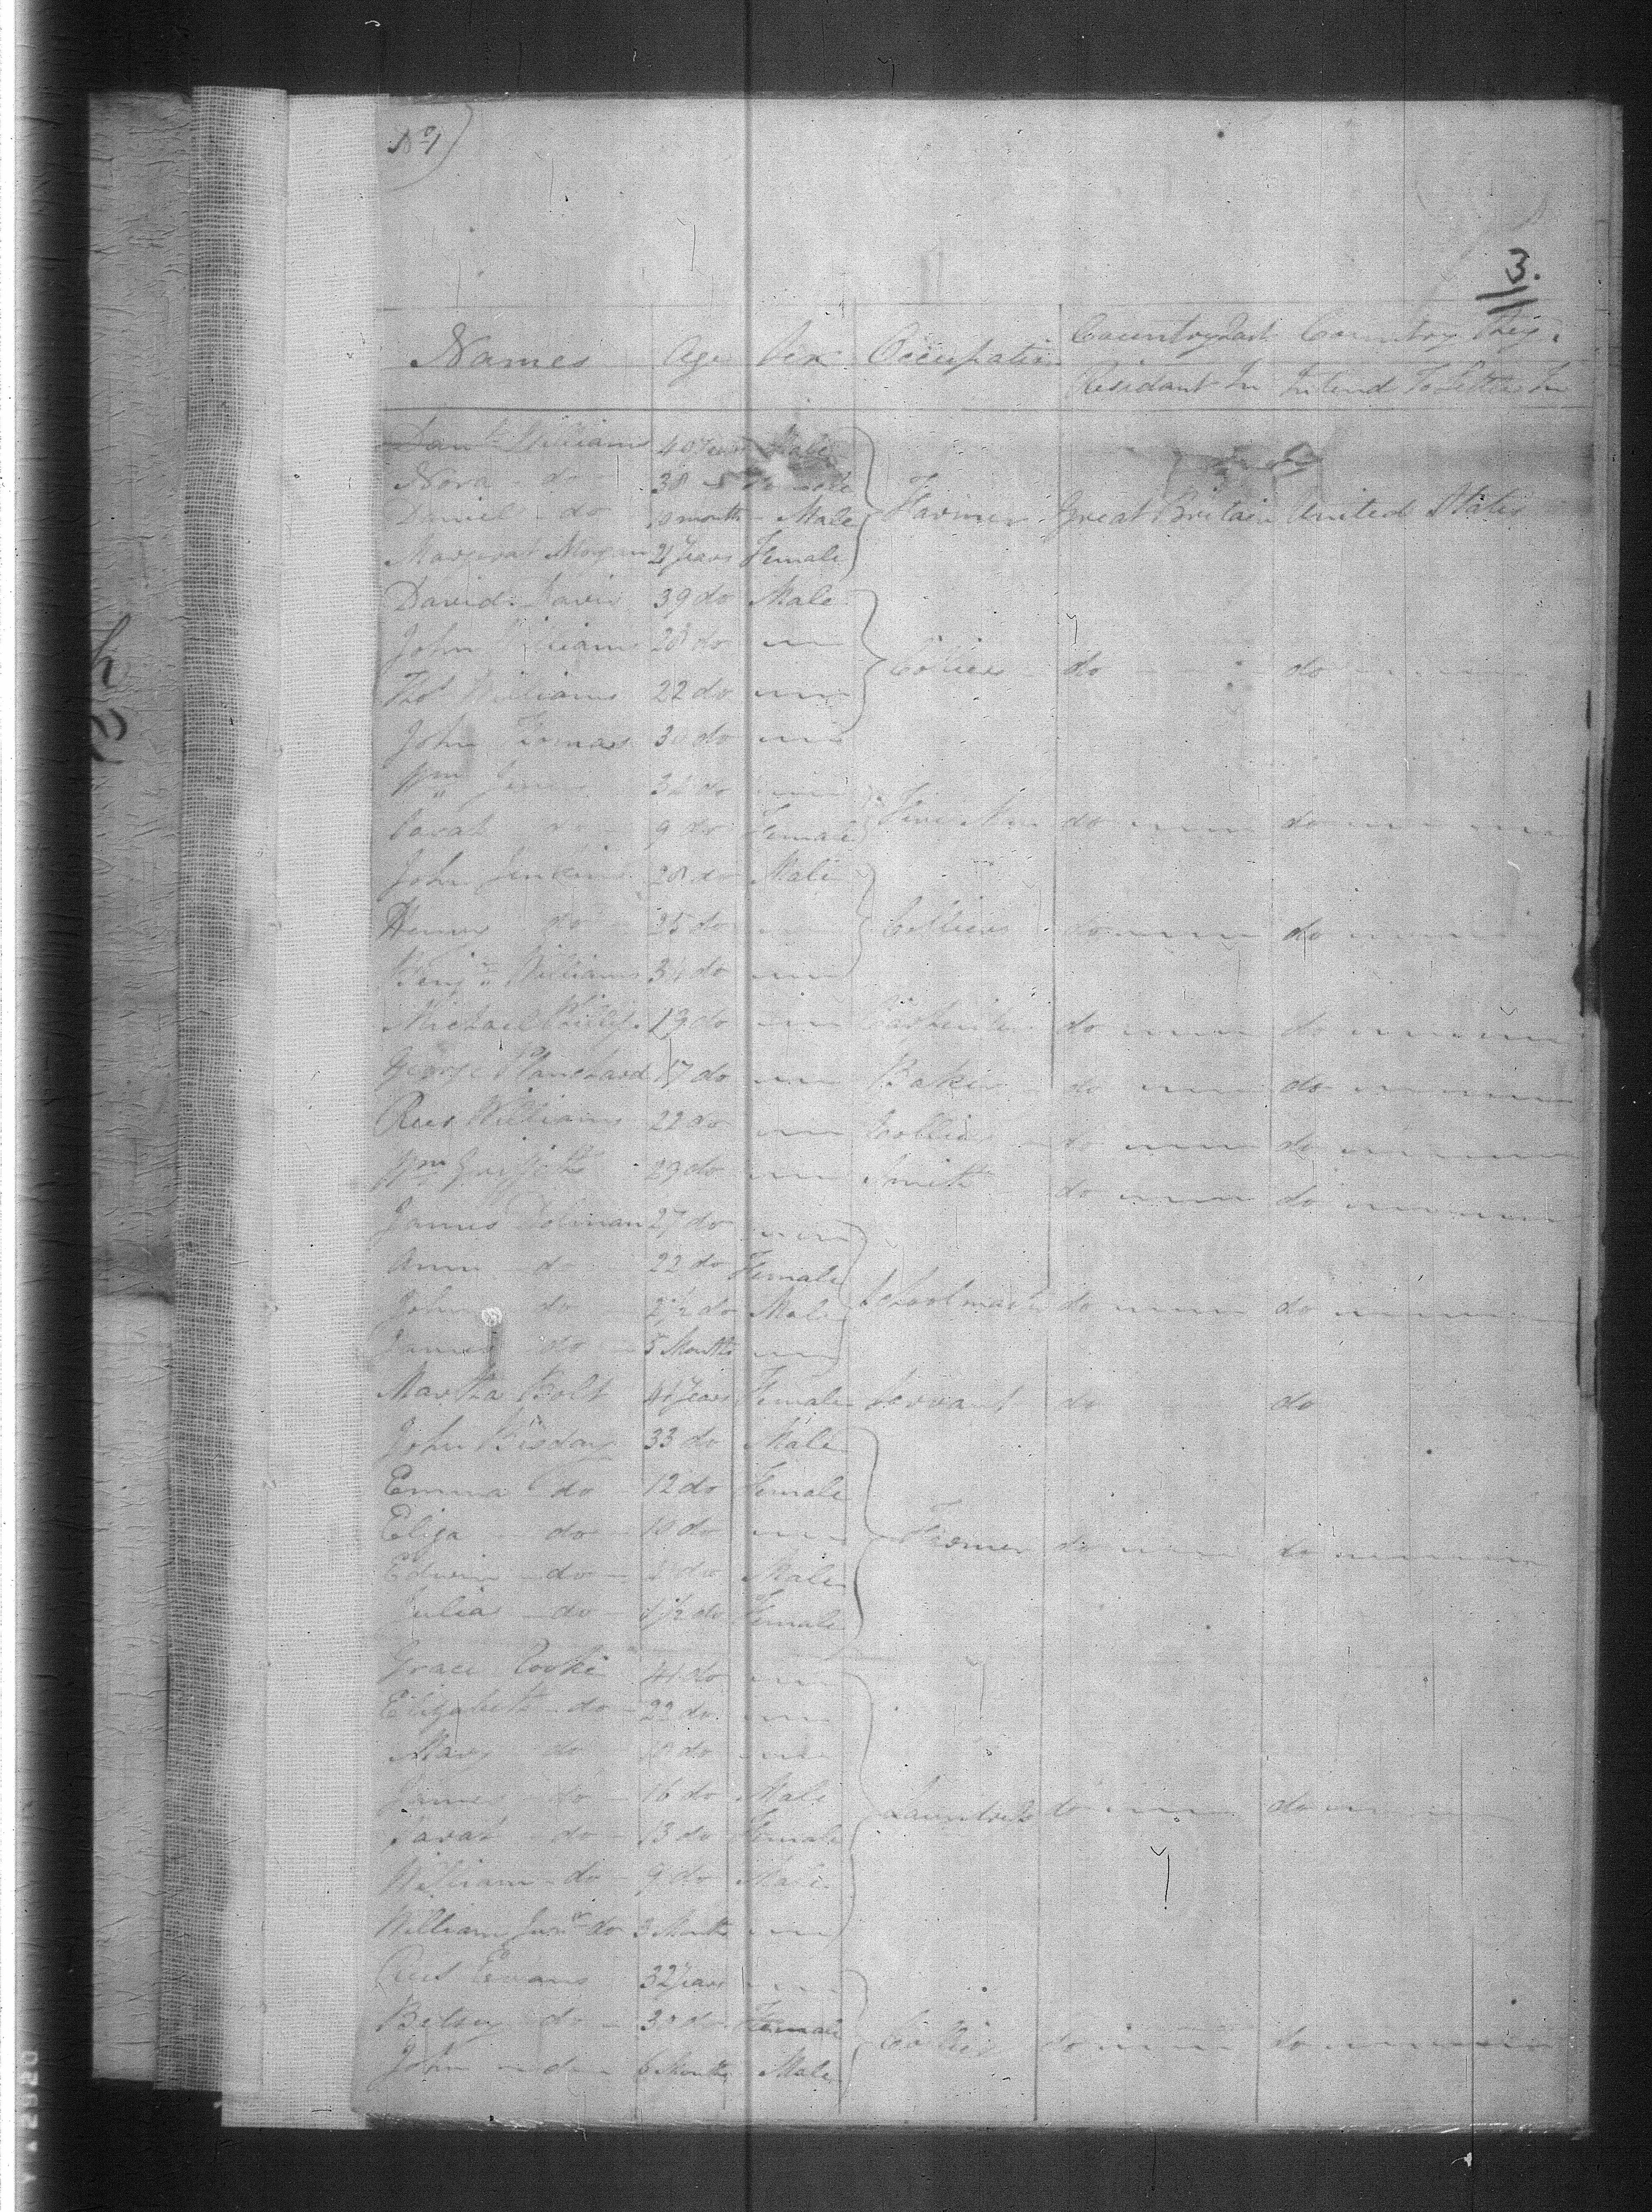 No 1)
3.
Names Age Sex Occupation Country Last Country They
Residant In Intend To Settle In
Danl Williams 40 Years Male
Nora do 38 Female
Daniel do 10 month Male Farmer Great Britain United States
Margerat Morgan 21 Years Female
David Davis 39 do Male
John Williams 28 do
Colliers do do
Thos Williams 22 do
John Thomas 30 do
Wm do
Sarah do 9 do Female do do
John Jenkins 28 do Male
Henry do 35 do Colliers do do
Benjn Williams do
Michael Philips 19 do Carpenter do do
George Planchard 17 do Baker do do
Rees Williams 22 do Collier do do
Wm Griffith 29 do Smith do do
James Dolman 27 do
Ann do 22 do Female
John do 2 1/2 do Male Schoolmaster do do
James do 5 Months
Martha Bolt 41 Years Female Servant do do
John Bisday 33 do Male
Emma do 12 do Female
Eliza do 10 do Farmer do do
Edwin do do Male
Julia do 1 1/2 do Female
Grace Cooke 41 do
Elizabeth do 22 do
Mary do 18 do
James do 16 do Male
Laundress do do
Sarah do 13 do Female
William do 9 do Male
William Junr do 3 Month
Rees Evans 32 Years
Betsey do 30 do Female
Collier do do
John do 6 Months Male